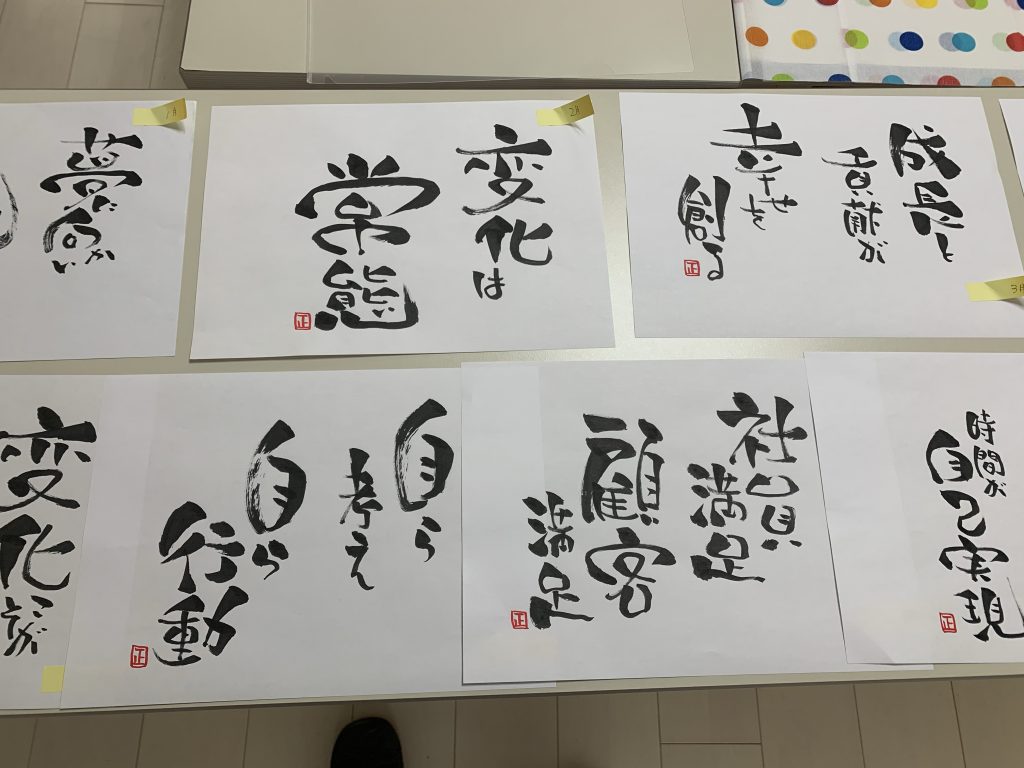 1月
夢に
向かい
2月
変化は
常態
正
成長と
貢献が
幸せを
創る
正
3月
変化
自ら
考え
自ら
行動
正
社員
満足
顧客
満足
正
時間が
自己実現
正